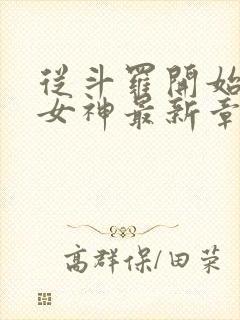 從斗羅開始
女神最新章
高群保/田荣